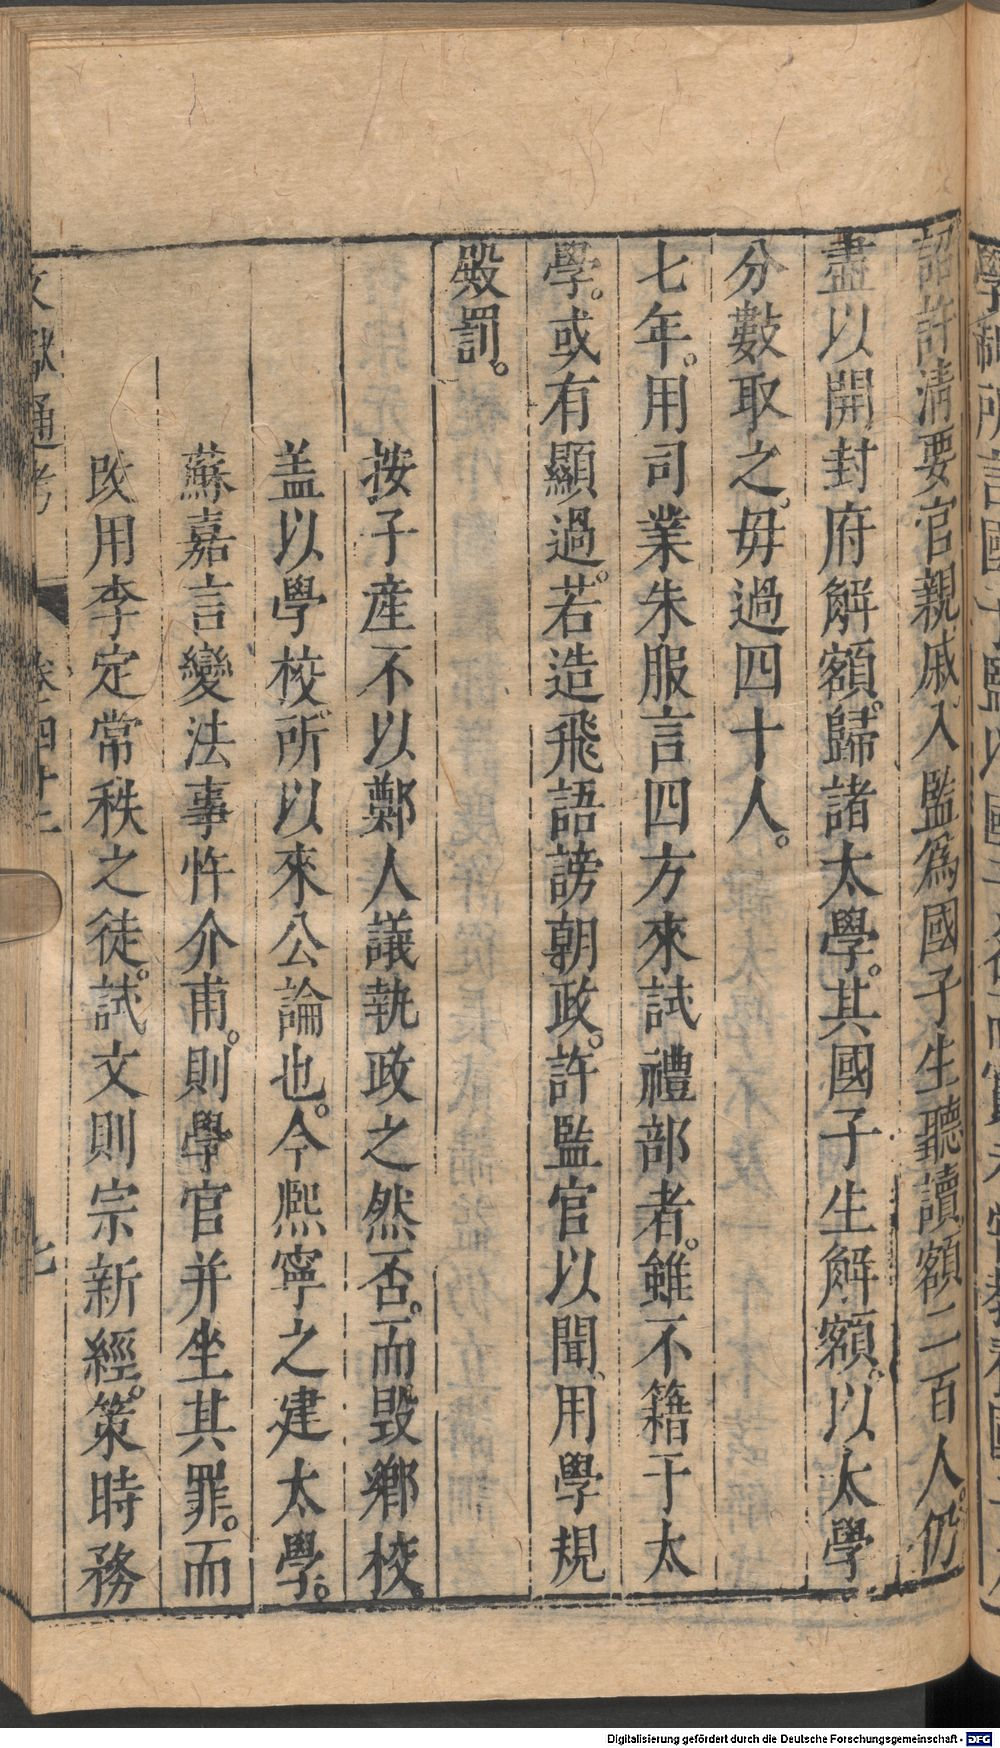 詔許清要官親戚入監爲國子生聽讀額二百人。仍
盡以開封府解額。歸諸太學。其國子生解額。以太學
分數取之。毋過四十人。
七年。用司業朱服言四方來試禮部者。雖不籍于太
學。或有顯過。若造飛語謗朝政。許監官以聞、用學規
殿罰。
按子産不以鄭人議執政之然否。而毀鄉校。
盖以學校所以來公論也。今熙寧之建太學。
蘇嘉言變法事忤介甫。則學官并坐其罪。而
改用李定常秩之徒。試文則宗新經。策時務
文獻通考 卷四十二 七
Digitalisierung gefördert durch die Deutsche Forschungsgemeinschaft - DFG